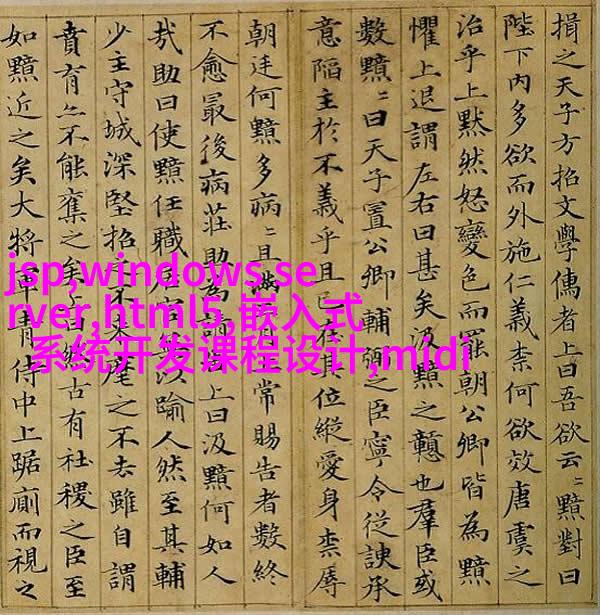 揖之天子方招文學儒者上曰吾欲云〻黯對曰
陛下内多欲而外施仁義柰何欲效唐虞之
治乎上黙然怒變色而罷朝公卿皆為黯
懼上退謂左右曰甚矣汲黯之戇也羣臣或
數黯〻曰天子置公卿輔弼之臣寧令從諛承
意陷主於不義乎且已在其位縱愛身柰辱
朝廷何黯多病〻且滿三月上常賜告者數終
不愈最後病莊助為請告上曰汲黯何如人
㢤助曰使黯任職居官無以踰人然至其輔
少主守城深堅招之不来麾之不去雖自謂
賁育亦不能奪之矣上曰然古有社稷之臣至
如黯近之矣大將軍青侍中上踞廁而視之
jsp,windows se
rver,html5,嵌入式
系统开发课程设计,midi